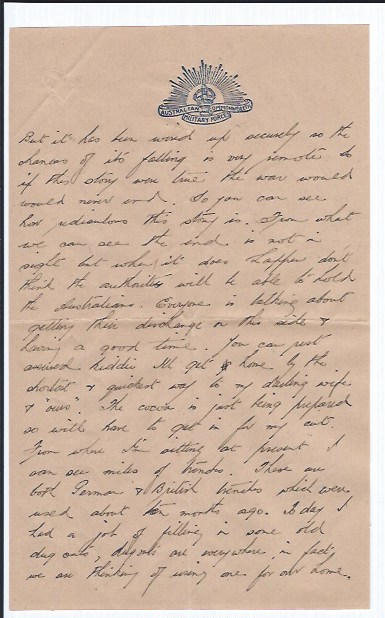 AUSTRALIAN COMMONWEALTH
MILITARY FORCES
But it has been wired up securely so the
chances of it's falling is very remote so
if this story were true the war would
would never end. So you can see
how rediculous this story is. From what
we can see the end is not in
sight but when it does happen don't
think the authorities will be able to hold
the Australians. Everyone is talking about
getting their discharge on this side &
having a good time. You can rest
assured kiddie I'll get home by the
shortest & quickest way to my darling wife
& "ours". The cocoa is just being prepared
so will have to get in for my cut.
From where I'm sitting at present I
can see miles of trenches. There are
both German & British trenches which were
used about ten months ago. To day I
had a job of filling in some old
dug outs, dugouts are everywhere in fact
we are thinking of using one for our home.